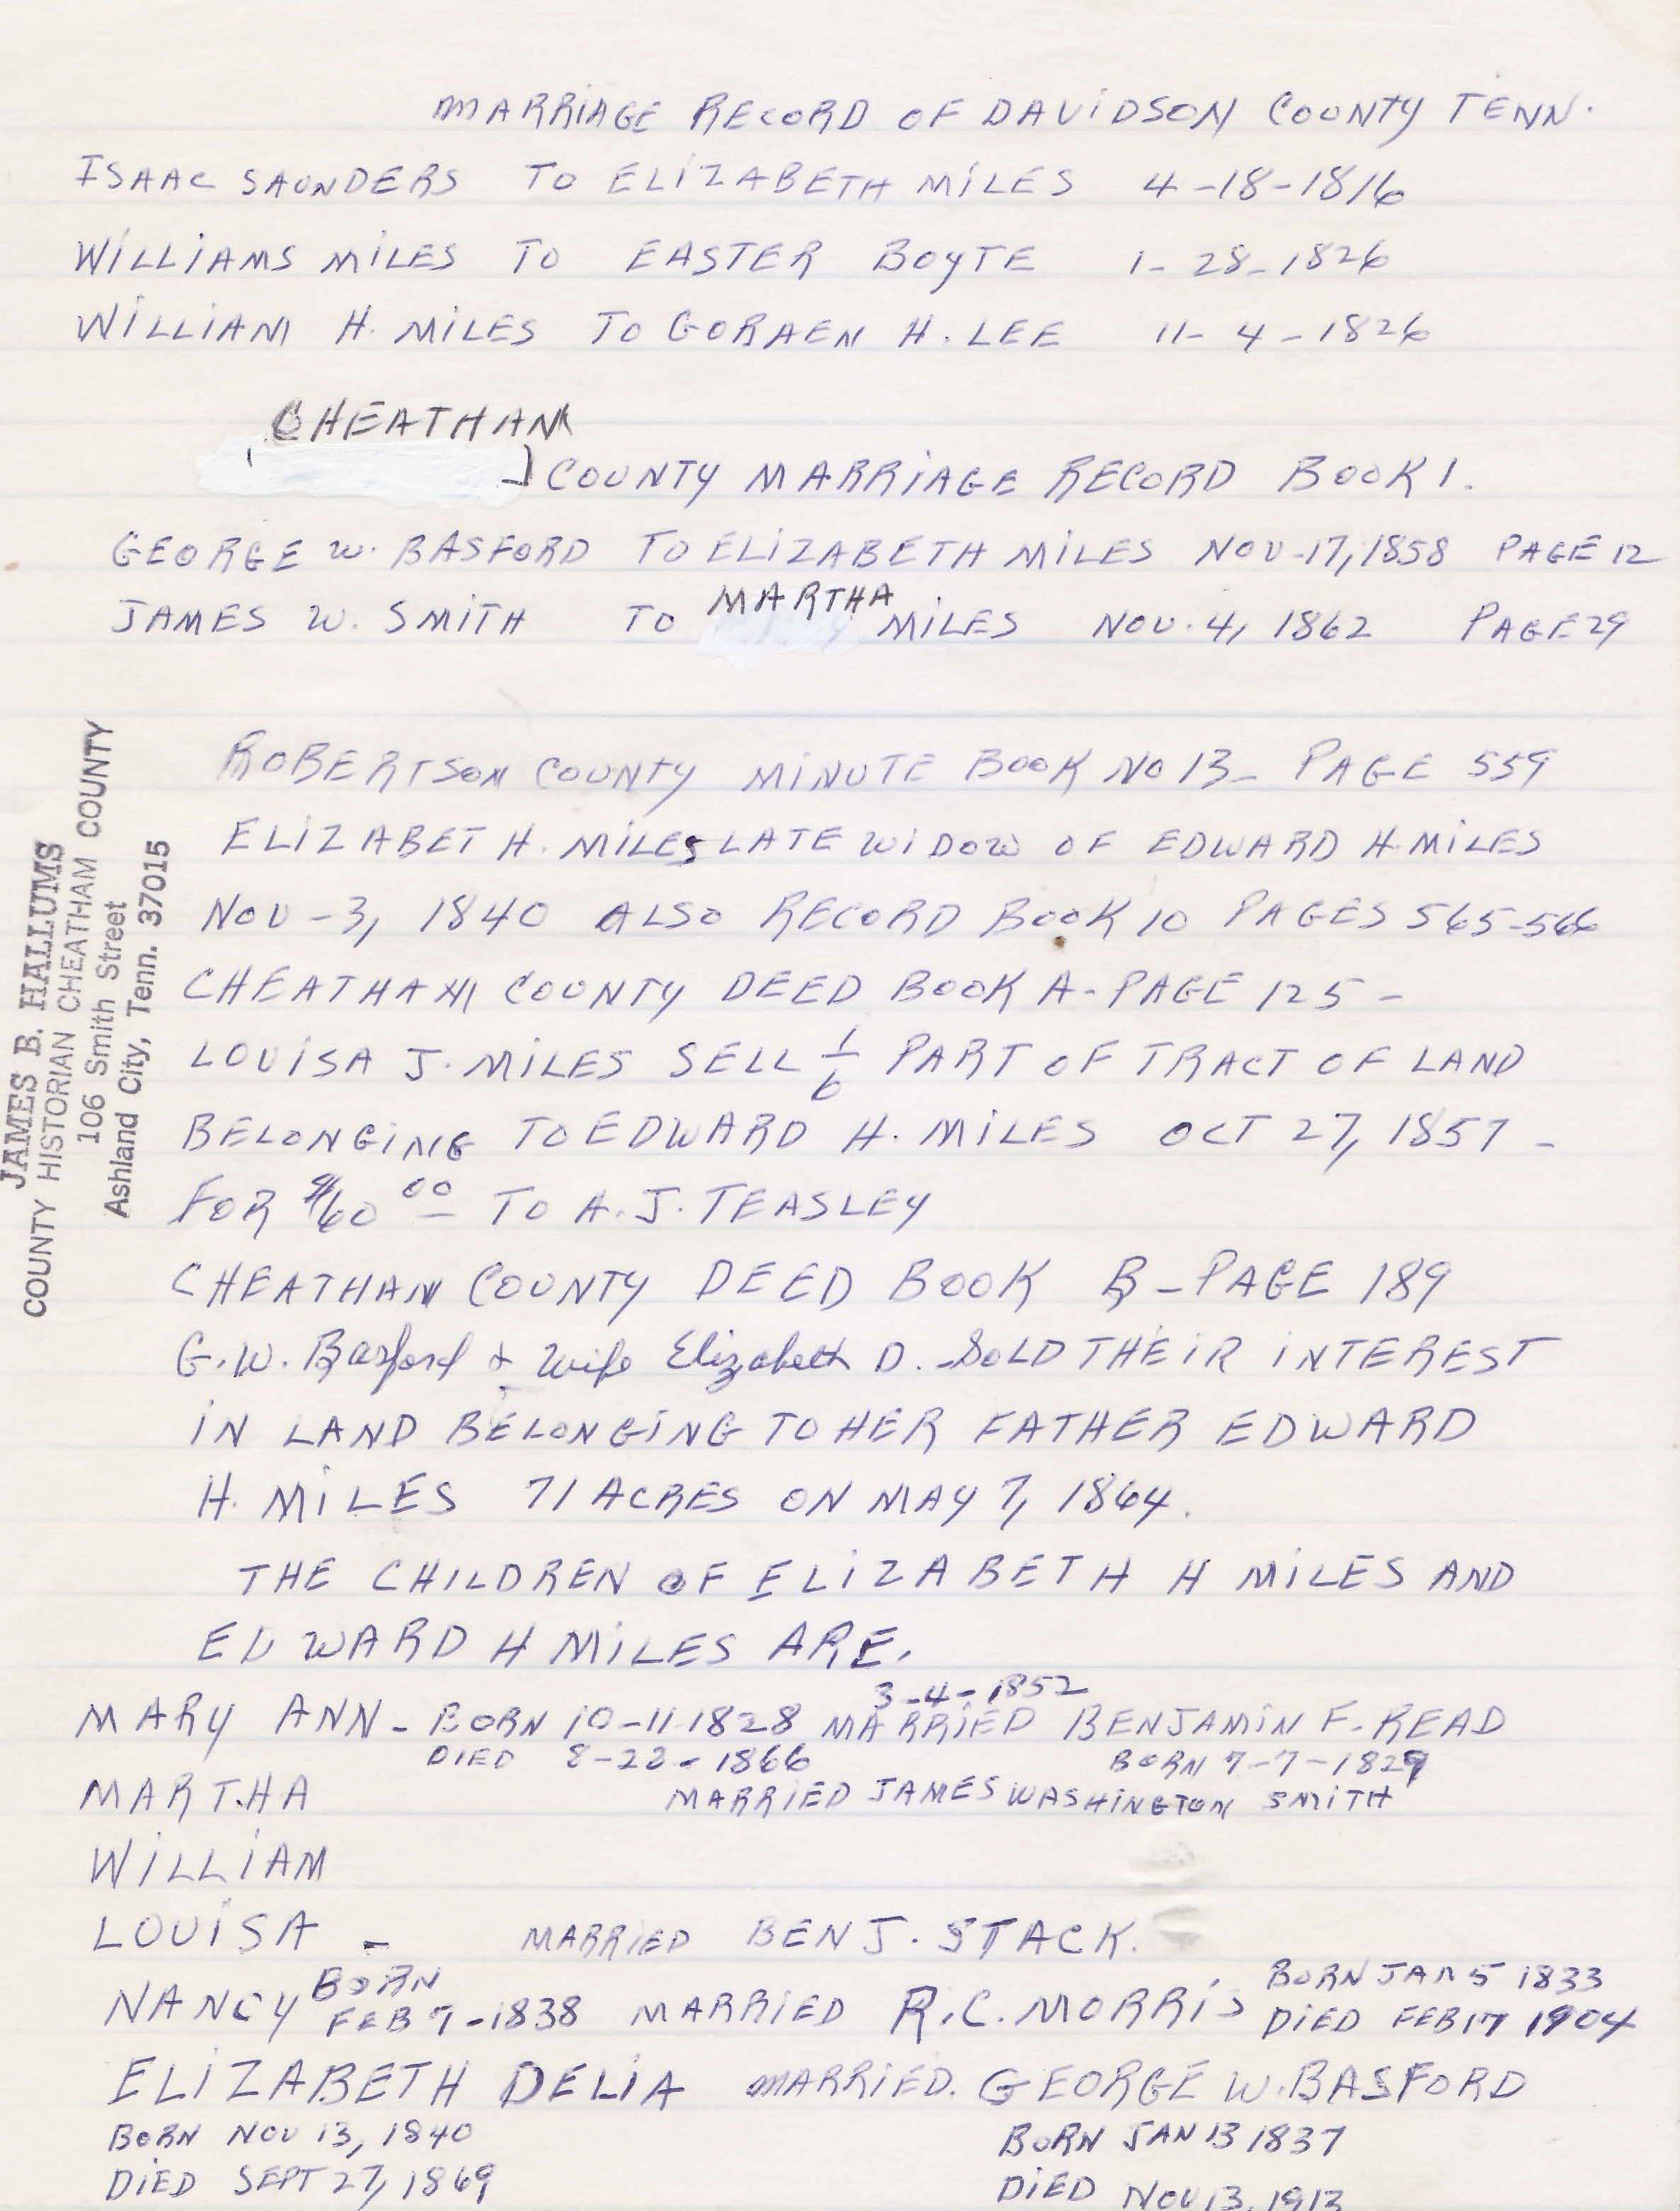 MARRIAGE RECORD OF DAVIDSON COUNTY TENN.
ISAAC SAUNDERS TO ELIZABETH MILES 4-18-1816
WILLIAMS MILES TO EASTER BOYTE 1-28-1826
WILLIAM H. MILES TO GORAEN H. LEE 11-4-1826
CHEATHAM
COUNTY MARRIAGE RECORD BOOK 1.
GEORGE W. BASFORD TO ELIZABETH MILES NOV-17, 1858 PAGE 12
JAMES W. SMITH TO MARTHA MILES NOV. 4, 1862 PAGE 29
ROBERTSON COUNTY MINUTE BOOK NO 13- PAGE 559
ELIZABET H. MILES LATE WIDOW OF EDWARD H MILES
NOV-3, 1840 ALSO RECORD BOOK 10 PAGES 565-566
CHEATHAM COUNTY DEED BOOK A-PAGE 125-
LOUISA J. MILES SELL 1/6 PART OF TRACT OF LAND
BELONGING TO EDWARD H. MILES OCT 27, 1857-
FOR $160 00 TO A.J. TEASLEY
CHEATHAM COUNTY DEED BOOK B-PAGE 189
G.W. Basford & Wife Elizabeth D. -SOLD THEIR INTEREST
IN LAND BELONGING TO HER FATHER EDWARD
H. MILES 71 ACRES ON MAY 7, 1864.
THE CHILDREN OF ELIZABETH H MILES AND
EDWARD H MILES ARE.
3-4-1852
MARY ANN- BORN 10-11-1828 MARRIED BENJAMIN F. READ
DIED 8-22-1866 BORN 7-7-1829
MARTHA MARRIED JAMES WASHINGTON SMITH
WILLIAM
LOUISA - MARRIED BEN J. STACK.
NANCY BORN FEB 7-1838 MARRIED R.C. MORRIS BORN JAN 5 1833
DIED FEB 17 1904
ELIZABETH DELIA MARRIED. GEORGE W. BASFORD
BORN NOV 13, 1840 BORN JAN 13 1837
DIED SEPT 27, 1869 DIED NOV 13, 1913
JAMES B. HALLUMS
COUNTY HISTORIAN CHEATHAM COUNTY
106 Smith Street
Ashland City, Tenn. 37015